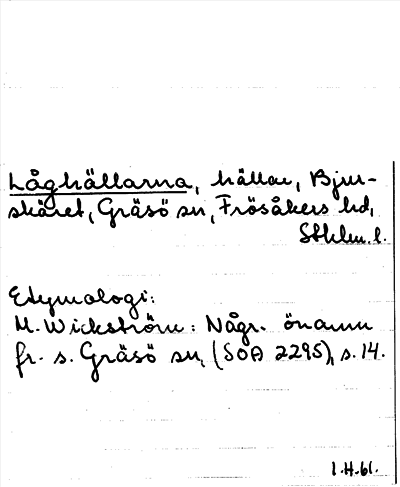 Låghällarna, hällar, Bjur-
skäret, Gräsö sn, Frösåkers hd,
Sthlm. l.
Etymologi:
M. Wickström: Någr. önamn
fr. s. Gräsö sn, (SOA 2295), s. 14.
I.H.61.